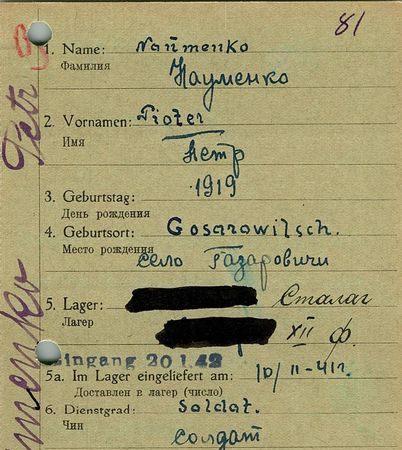 81
1. Name: Naumenko
Фамилия
Науменко
2. Vornamen: Pioter
Имя
Петр
1919
3. Geburtstag:
День рождения
4. Geburtsort: Gosarowitsch.
Место рождения
село Газаровичи
5. Lager: Сталаг
Лагер
XII ф.
Eingang 20.1.42
5a. Im Lager eingeliefert am: 10/II-41г.
Доставлен в лагер (число)
6. Dienstgrad: Soldat.
Чин
солдат
Petr
menko